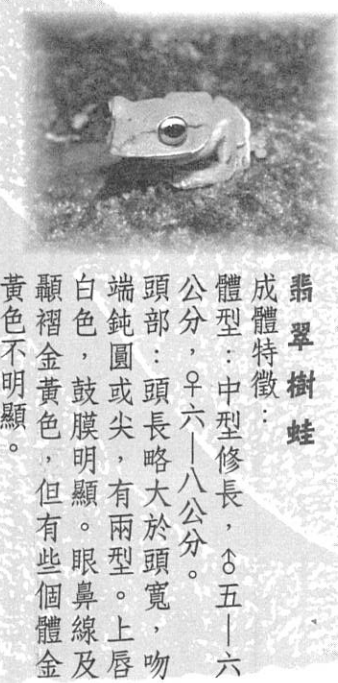 翡翠樹蛙
成體特徵：
體型：中型修長，♂五—六
公分，♀六—八公分。
頭部：頭長略大於頭寬，吻
端鈍圓或尖，有兩型。上唇
白色，鼓膜明顯。眼鼻線及
顳褶金黃色，但有些個體金
黃色不明顯。